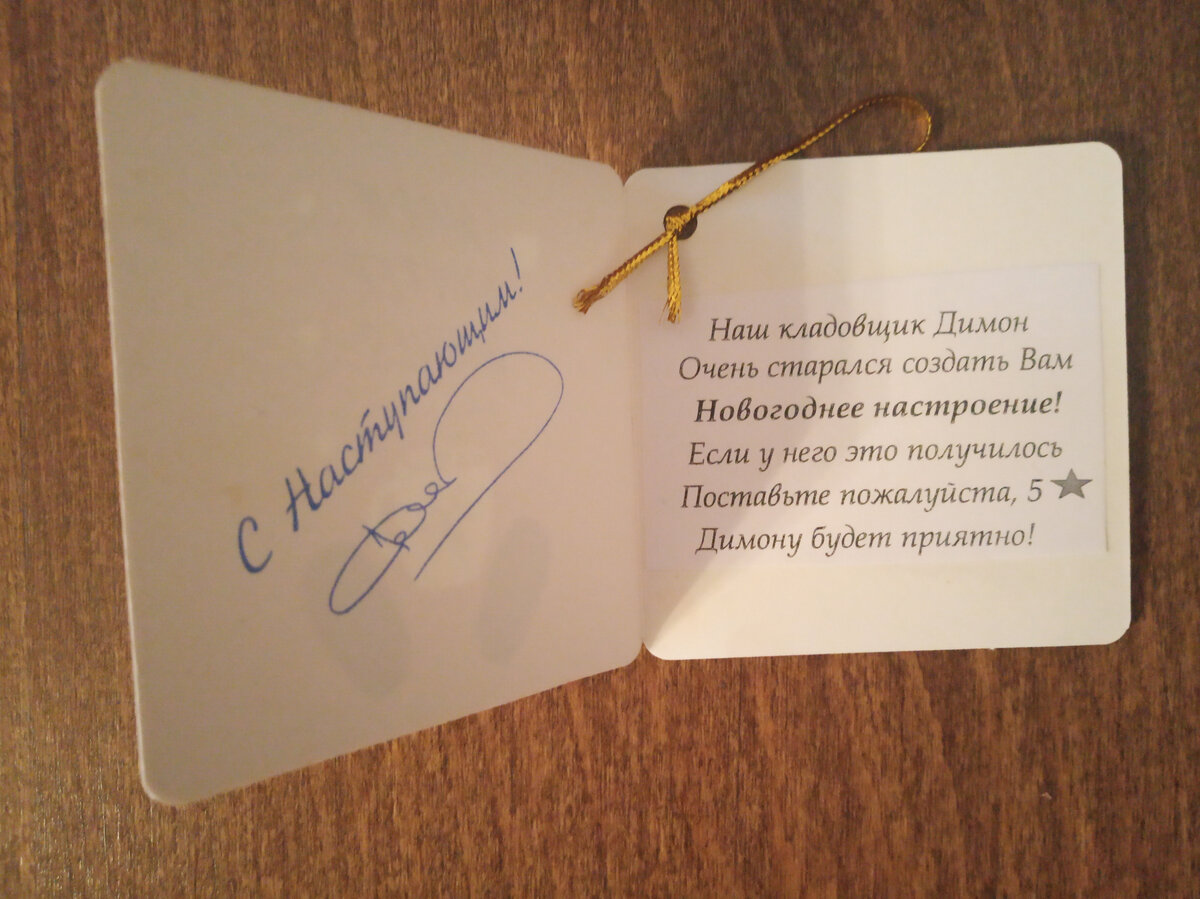 С Наступающим!
Наш кладовщик Димон
Очень старался создать Вам
Новогоднее настроение!
Если у него это получилось
Поставьте пожалуйста, 5 ★
Димону будет приятно!